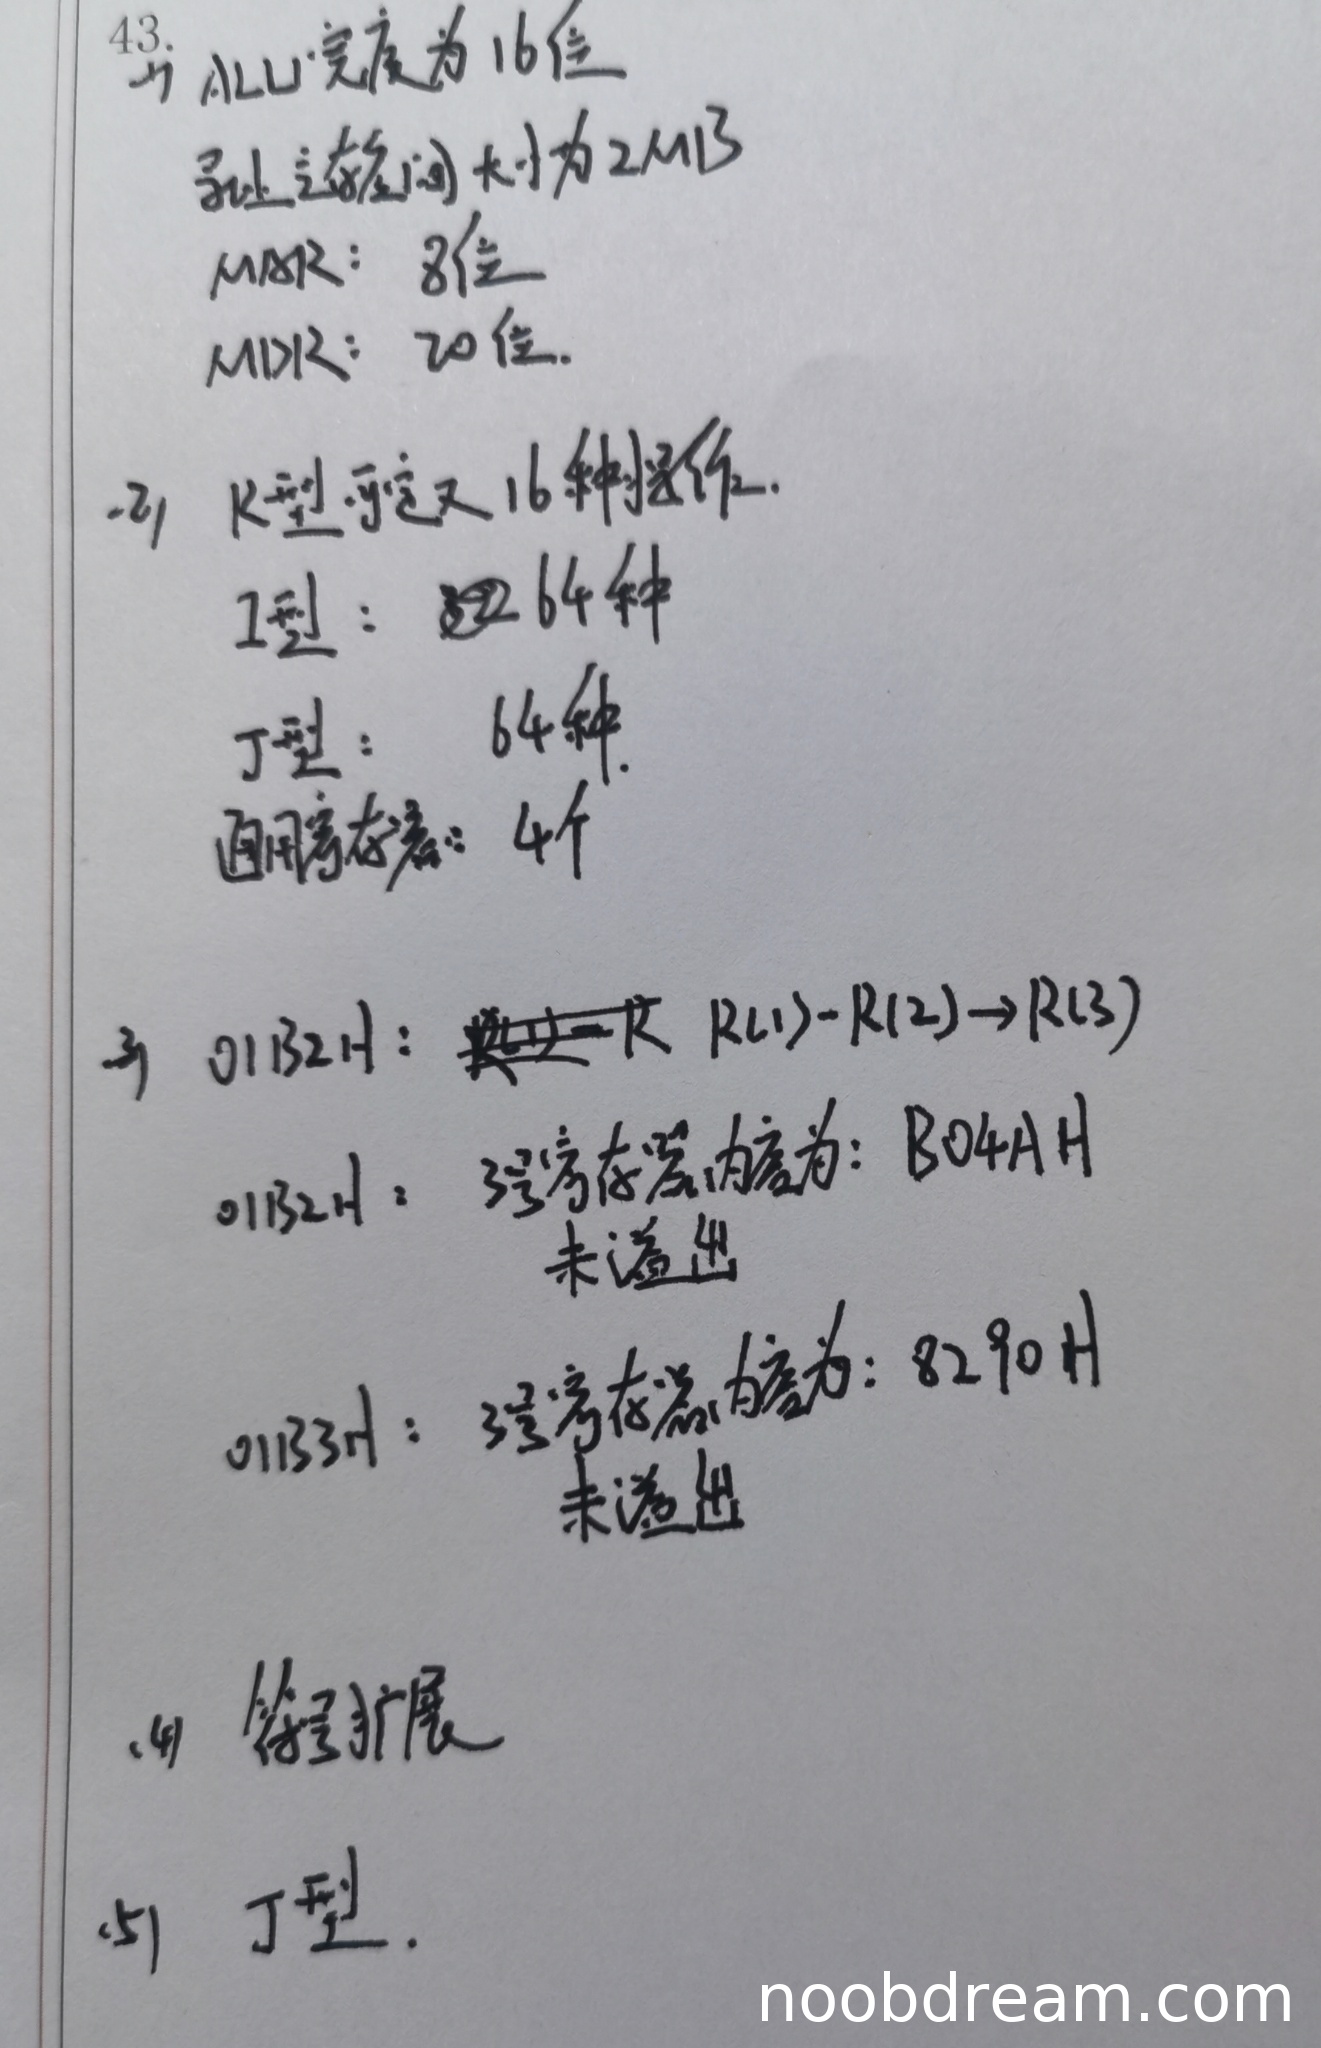 43.
(1) ALU宽度为16位
寻址主存空间大小为2MB
MAR: 8位
MDR: 20位.
(2) R型可定义16种操作.
I型: 64种
J型: 64种.
通用寄存器: 4个
(3) 01B2H: R(1)-R(2)→R(3)
01B2H: 3号寄存器内容为: B04AH
未溢出
01B3H: 3号寄存器内容为: 8290H
未溢出
(4) 符号扩展
(5) J型.
noobdream.com